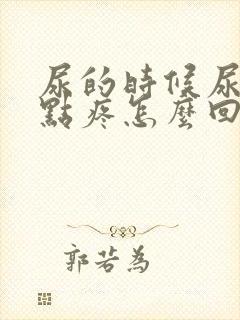 尿的時候尿
點疼怎麼回
郭若為